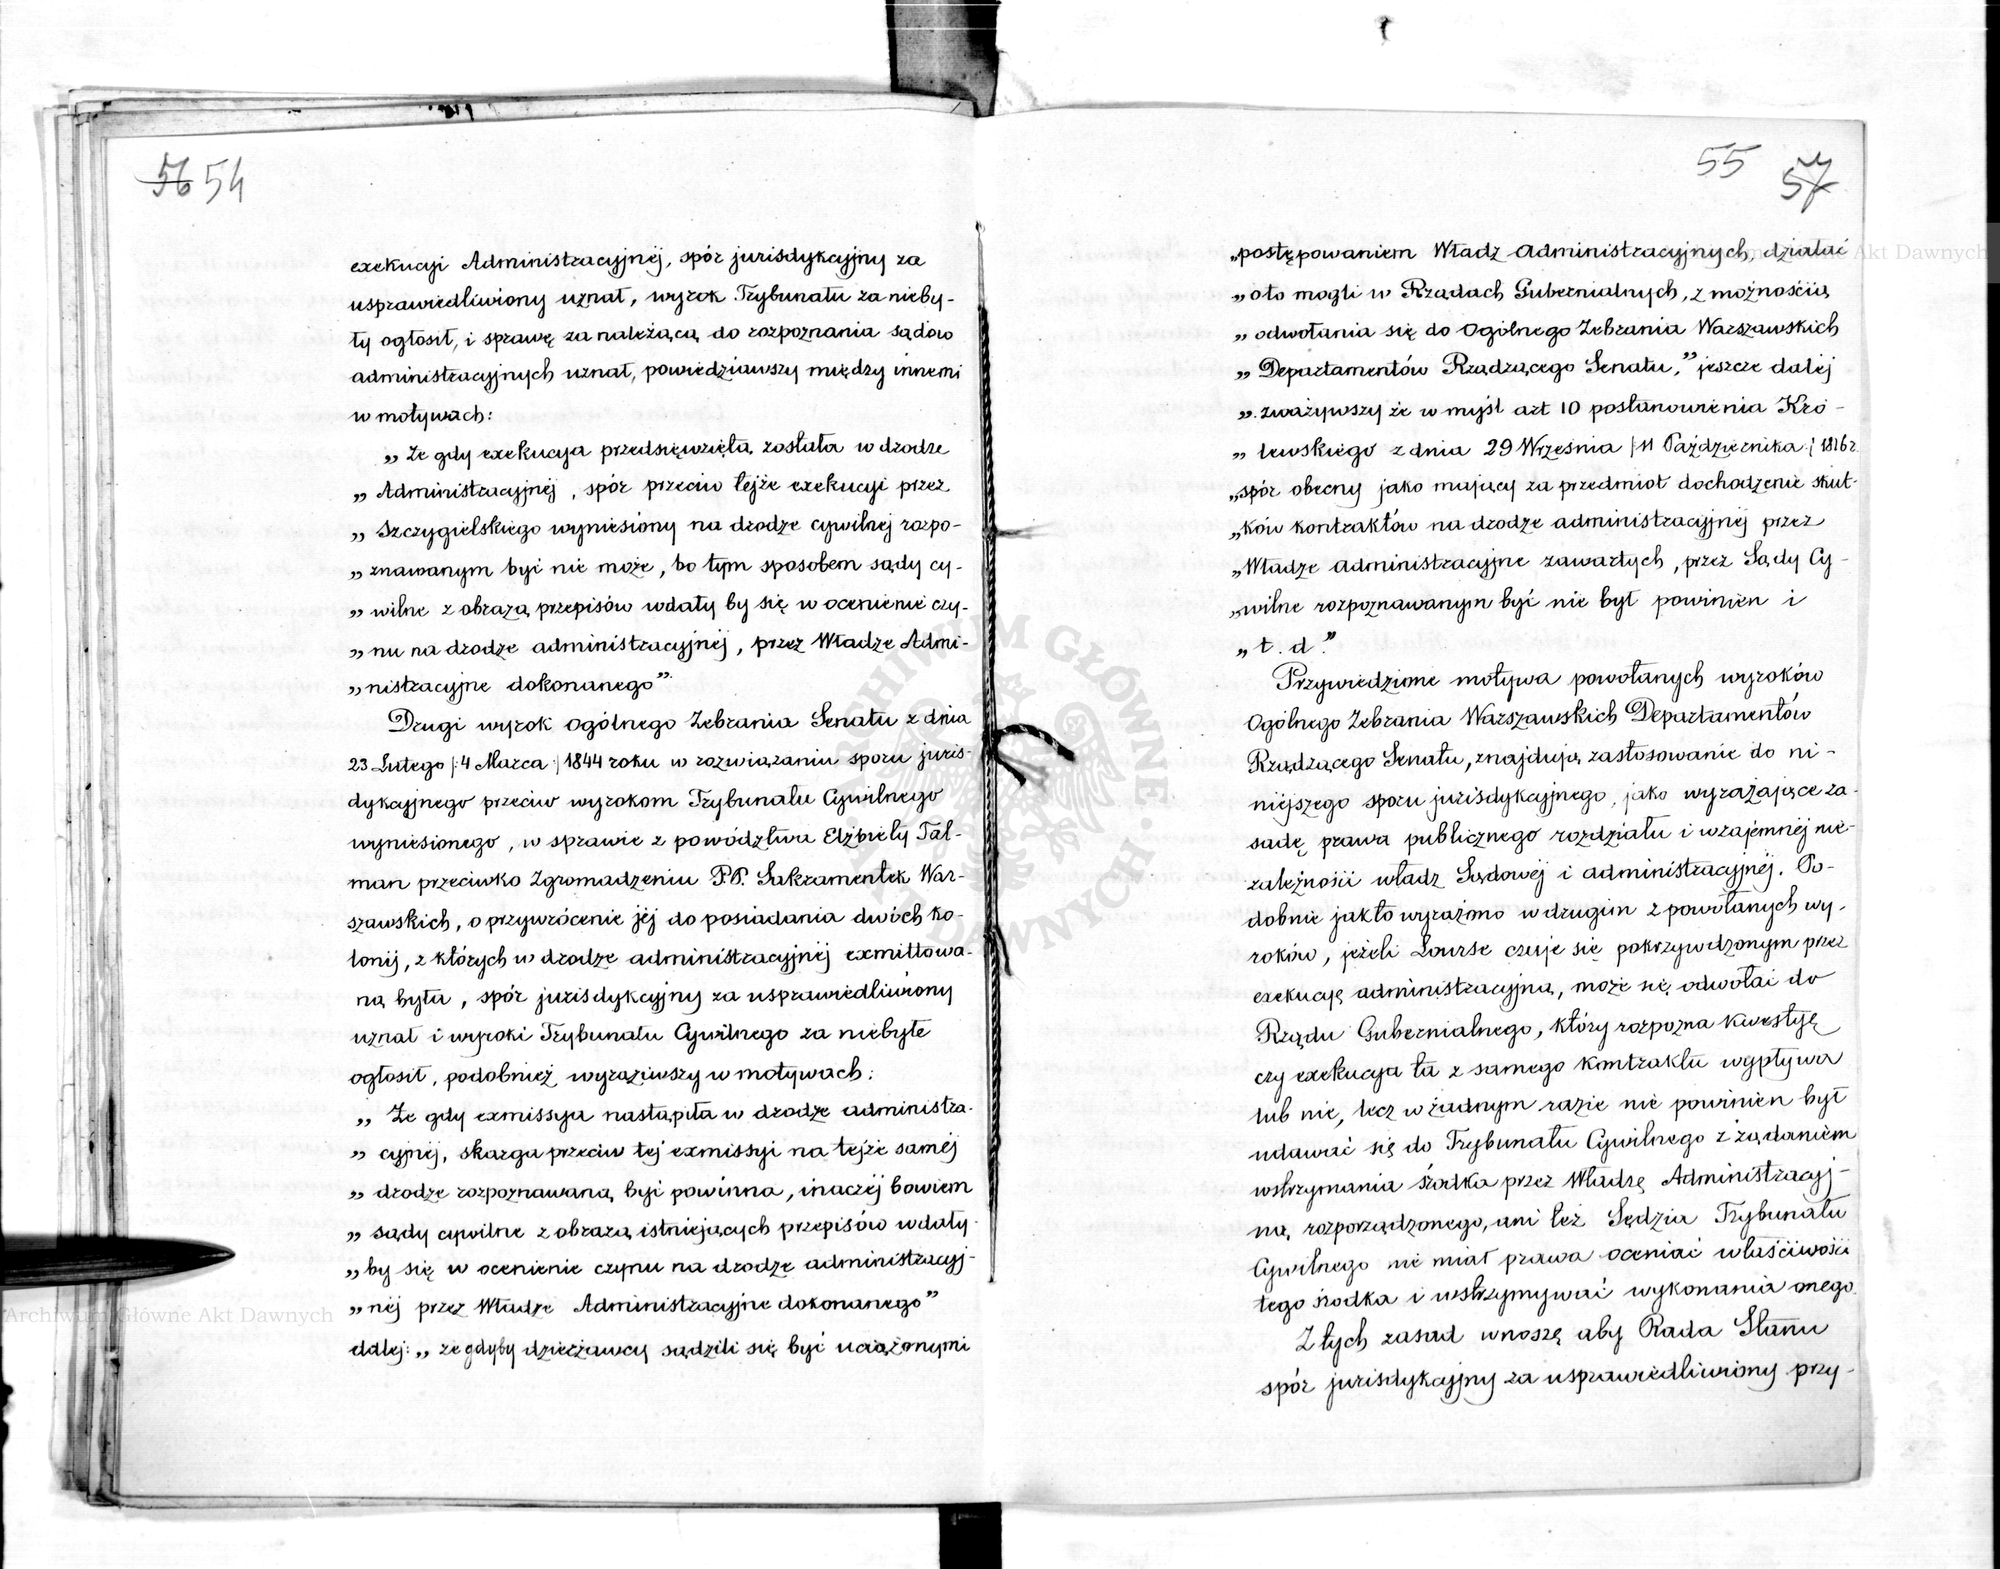 56 54
exekucyi Administracyjnéj, spór jurisdykcyjny za
usprawiedliwiony uznał, wyrok Trybunału za nieby-
ły ogłosił, i sprawę za należącą do rozpoznania sądów
administracyjnych uznał, powiedziawszy między innemi
w motywach:
„ Że gdy exekucya przedsięwzięta została w drodze
„ Administracyjnéj, spór przeciw tejże exekucyi przez
„ Szczygielskiego wyniesiony na drodze cywilnéj rozpo-
„ znawanym być nie może, bo tym sposobem sądy cy-
„ wilne z obrazą przepisów wdały by się w ocenienie czy-
„ nu na drodze administracyjnéj, przez Władze Admi-
„ nistracyjne dokonanego”
Drugi wyrok Ogólnego Zebrania Senatu z dnia
23 Lutego /:4 Marca:/ 1844 roku w rozwiązaniu sporu juris-
dykcyjnego przeciw wyrokom Trybunału Cywilnego
wyniesionego, w sprawie z powództwa Elżbiety Tal-
man przeciwko Zgromadzeniu P.P. Sakramentek War-
szawskich, o przywrócenie jéj do posiadania dwóch ko-
lonij, z których w drodze administracyjnéj exmittowa-
ną była, spór jurisdykcyjny za usprawiedliwiony
uznał i wyroki Trybunału Cywilnego za niebyłe
ogłosił, podobnież wyraziwszy w motywach:
„ Że gdy exmissya nastąpiła w drodze administra-
„ cyjnéj, skarga przeciw téj exmissyi na tejże saméj
„ drodze rozpoznawaną być powinna, inaczéj bowiem
„ sądy cywilne z obrazą istniejących przepisów wdały-
„ by się w ocenienie czynu na drodze administracyj-
„ néj przez Władze Administracyjne dokonanego”
daléj: „ że gdyby dzierżawcy sądzili się być uciążonymi
55 57
„postępowaniem Władz Administracyjnych, działać
„ oto mogli w Rządach Gubernialnych, z możnością
„ odwołania się do Ogólnego Zebrania Warszawskich
„ Departamentów Rządzącego Senatu,” jeszcze daléj
„ zważywszy że w myśl art 10 postanowienia Kró-
„ lewskiego z dnia 29 Września /:11 Października:/ 1816 r.
„spór obecny jako mający za przedmiot dochodzenie skut-
„ków kontraktów na drodze administracyjnéj przez
„Władze administracyjne zawartych, przez Sądy Cy-
„wilne rozpoznawanym być nie był powinien i
„ t. d.”
Przywiedzione motywa powołanych wyroków
Ogólnego Zebrania Warszawskich Departamentów
Rządzącego Senatu, znajdują zastosowanie do ni-
niejszego sporu jurisdykcyjnego, jako wyrażające za-
sadę prawa publicznego rozdziału i wzajemnéj nie-
zależności władz Sądowéj i administracyjnéj. Po-
dobnie jak to wyrażono w drugim z powołanych wy-
roków, jeżeli Lourse czuje się pokrzywdzonym przez
exekucyę administracyjną, może się odwołać do
Rządu Gubernialnego, który rozpozna kwestyę
czy exekucya ta z samego kontraktu wypływa
lub nie, lecz w żadnym razie nie powinien był
udawać się do Trybunału Cywilnego z żądaniem
wstrzymania środka przez Władzę Administracyj-
ną rozporządzonego, ani też Sędzia Trybunału
Cywilnego nie miał prawa oceniać właściwości
tego środka i wstrzymywać wykonania onego.
Z tych zasad wnoszę aby Rada Stanu
spór jurisdykcyjny za usprawiedliwiony przy-
Archiwum Główne Akt Dawnych